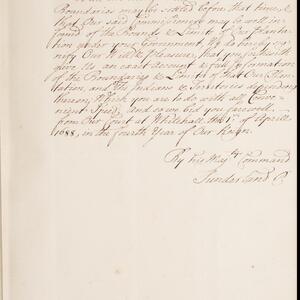 Boundaries may be settled before that time &
that Our said Commissioners may be well in-
formed of the Bounds & Limits of Our Planta-
tion under your Government, We do hereby sig-
nify Our Will & Pleasure, that you forthwith
give Us an exact account & full Information
of the Boundaries & Limits of that Our Plan-
tation, and the Indians & Territories depending
thereon; Which you are to do with all Conve-
nient Speed, and so we bid you farewell.
from Our Court at Whitehall the 1st of Aprill
1688, in the fourth Year of Our Reign.
By his Maj.ty Command
Sunderland P.